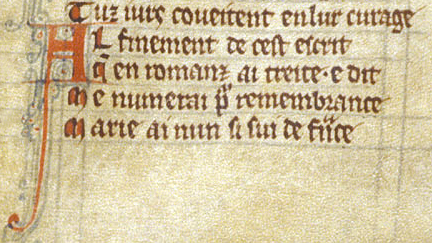 Tuz iurs coueitent en lur curage
Al finement de cest escrit
Q̃ en romanz ai treite·e dit
Me numerai p̃ remembrance
Marie ai nun si sui de fñce